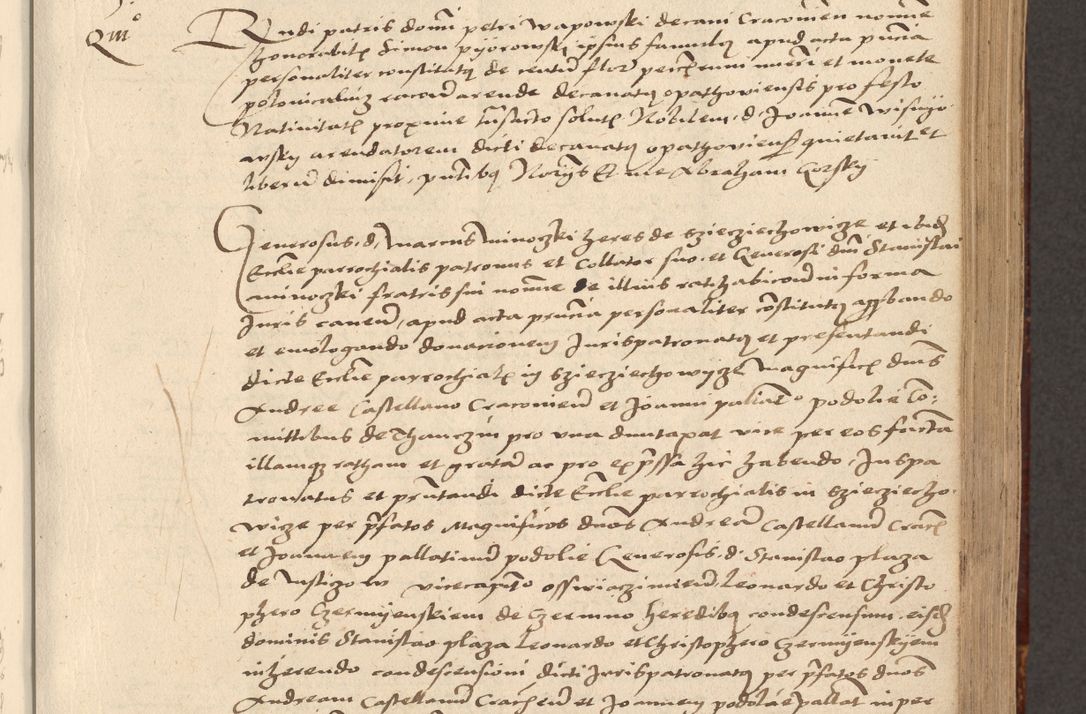 Quit
Rndi patris domi petri Wapowski decani Cracovien nomine
honorabilis Simon pyorowsky ipsius famulus apud acta pntia
personaliter constitutus de centu flor pecunie numeri et monete
polonicalium racione arende decanatus opathoviensis pro festo
Nativitatis proxime transacto solutis Nobilem d. Joannem Wisnyo
wsky arendatorem dicti decanatus opathovien quietavit et
liberu dimisit, pntibus Notariis Et me Abraham Gorsky
Generosus d. Marcus Minoczki heres de Szieziechowicze et ibid
Ecclie parrochialis patronus et Collator suo et Generosi dni Stanislai
Minoczki fratris sui nomine de illius ratihabicione in forma
Juris caven, apud acta presentia personaliter constitutus approbando
et emologando donacionem Jurispatronatus et presentandi
dicte Ecclie parrochialis in Szieziechowycze Magnificis dnis
Andree Castellano Cracovien et Joanni pallatino podolie Co-
mittibus de Thanczin pro una duntaxat vice per eos facta
illamque ratham et gratam ac pro expressa hic habendo, Juspa
tronatus et presentandi dicte Ecclie parrochialis in Szieziecho-
wicze per prefatos Magnificos dnos Andream Castellanum Cracovien
et Joannem pallatinum podolie Generosis d. Stanislao plaza
de Mstigow vicecapitaneo osswiaczimien Leonardo et Christo
phero Czermyenskiem de Czermno heredibus condescensum, eisdem
dominis Stanislao plaza Leonardo et Christophero Czermyenskyem
inherendo condescensioni dicti Jurispatronatus per prefatos dnos
Andream Castellanum Cracovien et Joannem podolie pallat in per